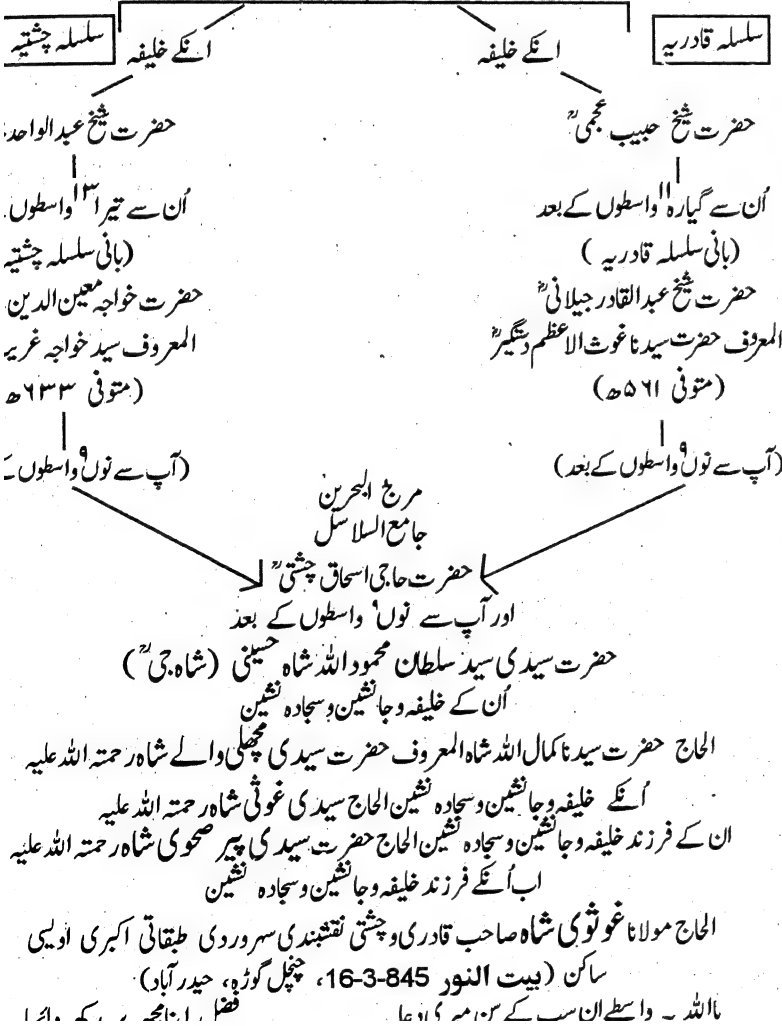 سلسلہ قادریہ
انکے خلیفہ
حضرت شیخ حبیب عجمیؒ
اُن سے گیارہ ۱۱ واسطوں کے بعد
(بانی سلسلہ قادریہ)
حضرت شیخ عبدالقادر جیلانیؒ
المعروف حضرت سیدنا غوث الاعظم دستگیرؒ
(متوفی ۵۶۱ھ)
(آپ سے نوں ۹ واسطوں کے بعد)
سلسلہ چشتیہ
انکے خلیفہ
حضرت شیخ عبدالواحد
اُن سے تیرا ۱۳ واسطوں
(بانی سلسلہ چشتیہ
حضرت خواجہ معین الدین
المعروف سید خواجہ غریب
(متوفی ۶۳۳ھ
(آپ سے نوں ۹ واسطوں
مرج البحرین
جامع السلاسل
حضرت حاجی اسحاق چشتیؒ
اور آپ سے نوں ۹ واسطوں کے بعد
حضرت سیدی سید سلطان محمود اللہ شاہ حسینی (شاہ جیؒ)
اُن کے خلیفہ و جانشین و سجادہ نشین
الحاج حضرت سیدنا کمال اللہ شاہ المعروف حضرت سیدی مچھلی والے شاہ رحمتہ اللہ علیہ
اُنکے خلیفہ و جانشین و سجادہ نشین الحاج سیدی غوثی شاہ رحمتہ اللہ علیہ
ان کے فرزند خلیفہ و جانشین و سجادہ نشین الحاج حضرت سیدی پیر صحوی شاہ رحمتہ اللہ علیہ
اب اُنکے فرزند خلیفہ و جانشین و سجادہ نشین
الحاج مولانا غوثوی شاہ صاحب قادری و چشتی نقشبندی سہروردی طبقاتی اکبری اویسی
ساکن (بیت النور 845-3-16، چنچل گوڑہ، حیدرآباد)
یااللہ واسطے ان سب کے سن میری دعا فضل اپنا